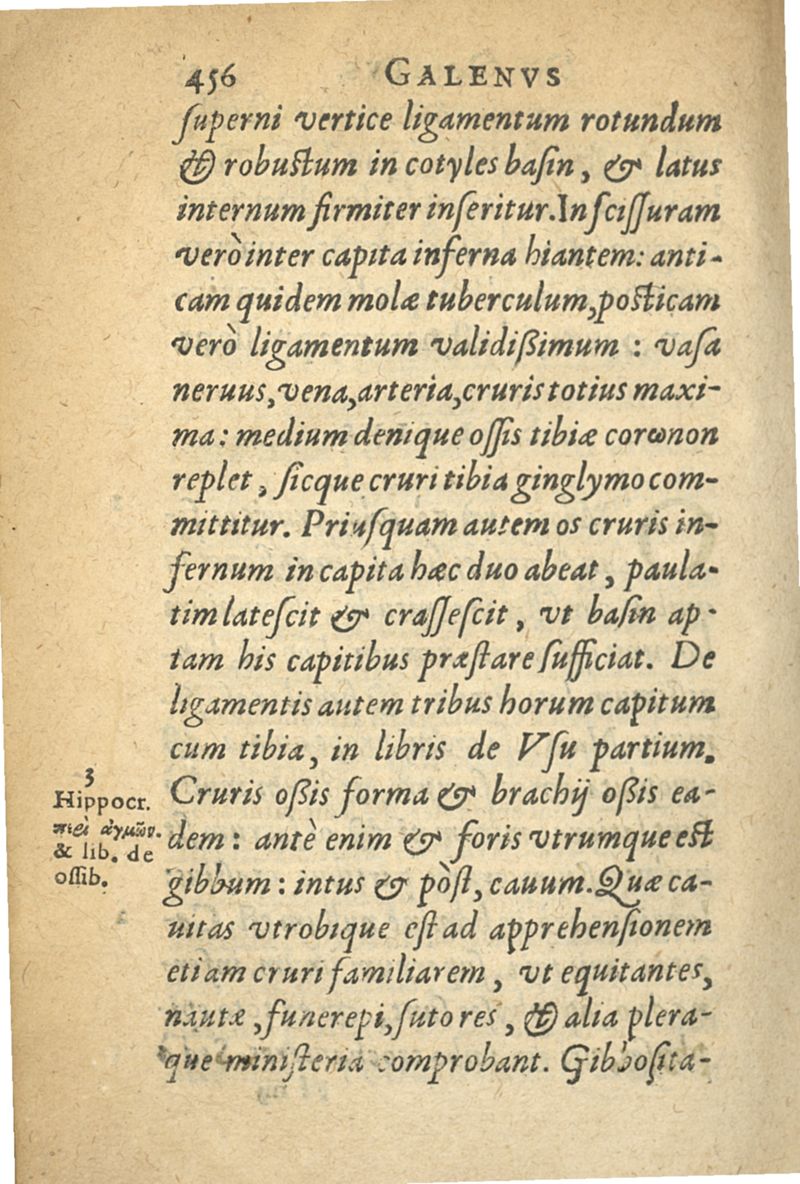 456 GALENVS
ſuperni vertice ligamentum rotundum
& robuſtum in cotyles baſin, & latus
internum firmiter inſeritur. In ſciſſuram
verò inter capita inferna hiantem: anti-
cam quidem molæ tuberculum, poſticam
verò ligamentum validißimum : vaſa
neruus, vena, arteria, cruris totius maxi-
ma: medium denique oſſis tibiæ corωnon
replet, ſicque cruri tibia ginglymo com-
mittitur. Priuſquam autem os cruris in-
fernum in capita hæc duo abeat, paula-
tim lateſcit & craſſeſcit, vt baſin ap-
tam his capitibus præſtare ſufficiat. De
ligamentis autem tribus horum capitum
cum tibia, in libris de Vſu partium.
Cruris oßis forma & brachij oßis ea-
dem: antè enim & foris vtrumque eſt
gibbum: intus & pòſt, cauum. Quæ ca-
uitas vtrobique eſt ad apprehenſionem
etiam cruri familiarem, vt equitantes,
nautæ, funerepi, ſutores, & alia plera-
que miniſteria comprobant. Gibboſita-
3
Hippocr.
περὶ ἀγμῶν.
& lib. de
oſſib.